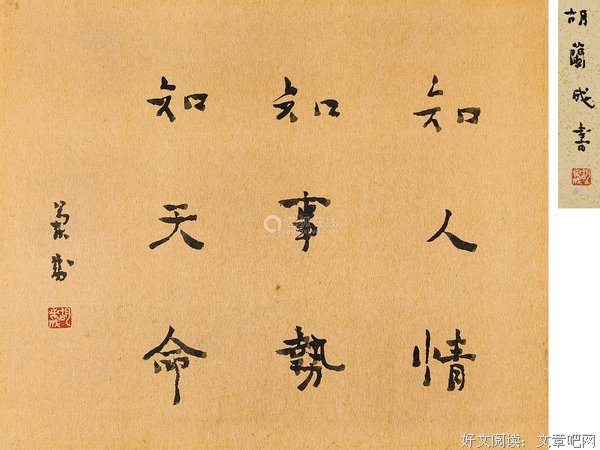 知人情
知事勢
知天命
胡蘭成書
好文阅读：文章吧网